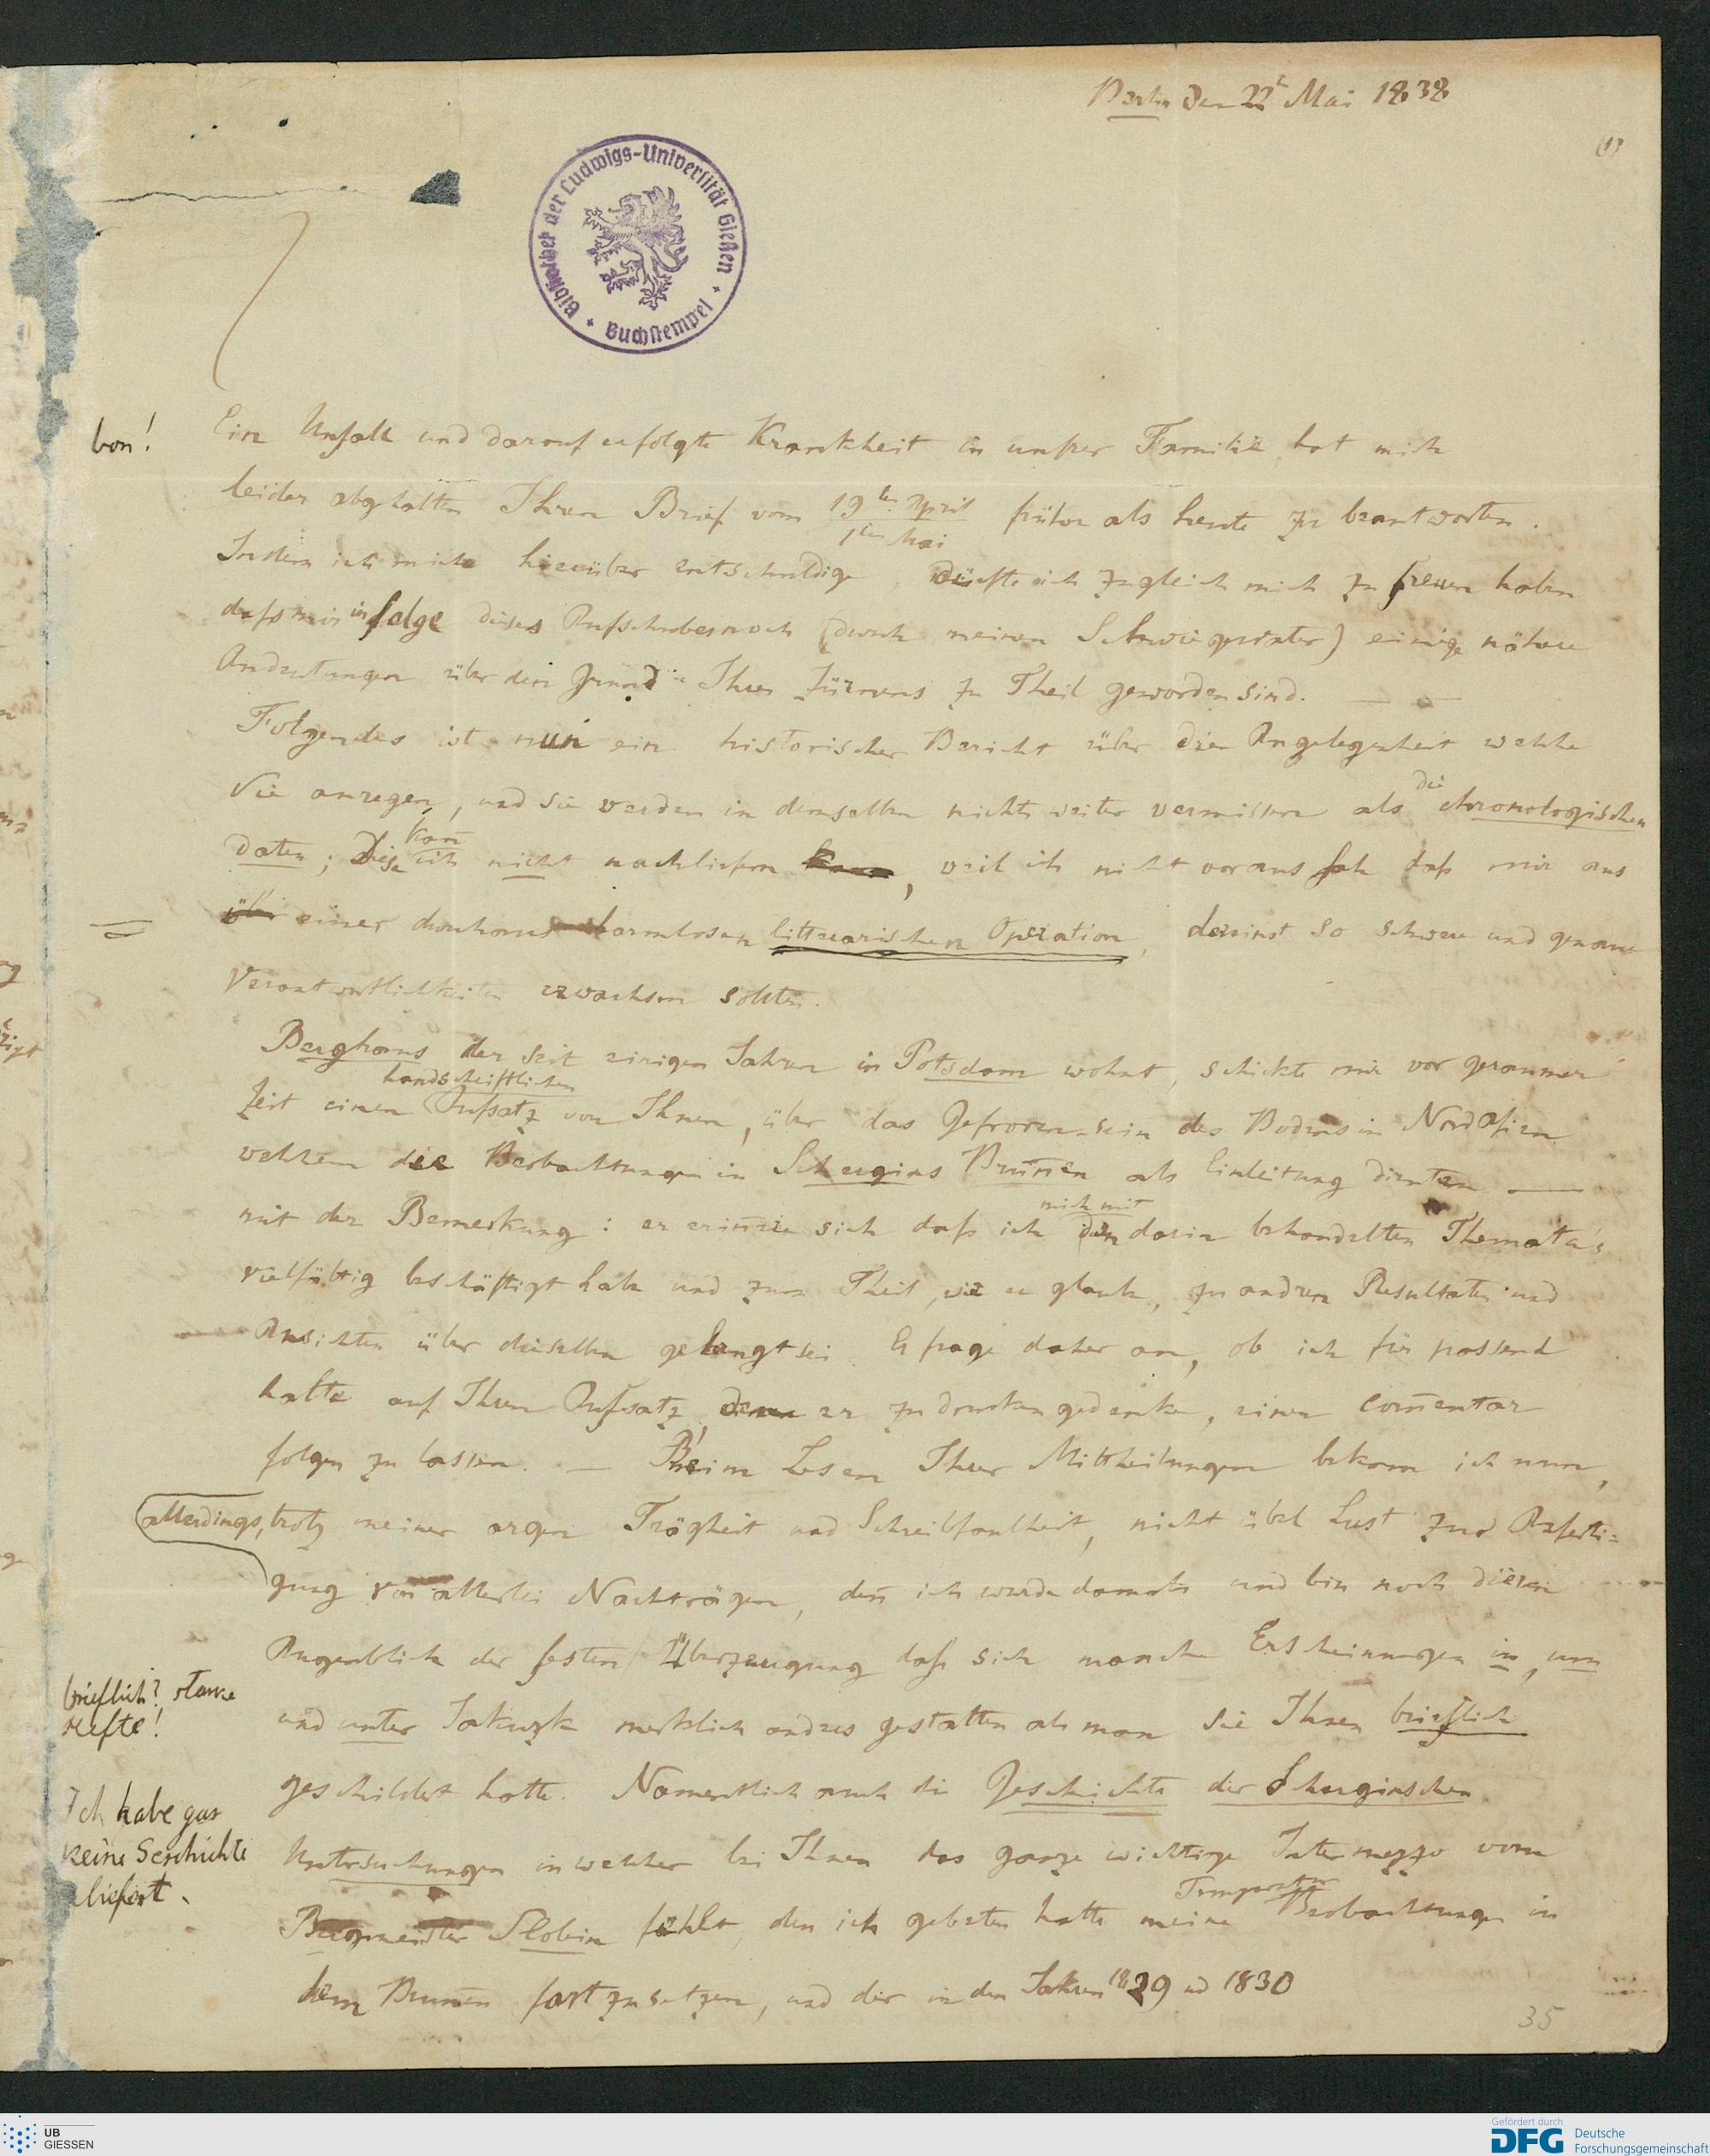 Berlin den 22t Mai 1838
(1)
Bibliothek der Ludwigs-Universität Gießen
Buchstempel
bon!
Ein Unfall und darauf erfolgte Krankheit in unsrer Familie hat mich
leider abgehalten Ihren Brief vom 19ten April / 1ten Mai früher als heute zu beantworten.
Indem ich mich hierüber entschuldige, dürfte ich zugleich mich zu freuen haben
dass mir in folge dieses Aufschubes noch (durch meinen Schwiegervater) einige nähere
Andeutungen über den Grund Ihres Zürnens zu Theil geworden sind. —
Folgendes ist nun ein historischer Bericht über die Angelegenheit welche
Sie anregen, und Sie werden in demselben nichts weiter vermissen als die chronologischen
daten; Diese kan̄ ich nicht nachliefern, weil ich nicht voraus sah daß mir aus
einer durchaus harmlosen litterarischen Operation, dereinst so schwere und genaue
Verantwortlichkeiten erwachsen sollten.
Berghaus der seit einigen Jahren in Potsdam wohnt, schickte mir vor geraumer
Zeit einen handschriftlichen Aufsatz von Ihnen, über das Gefroren-sein des Bodens in Nord Asien
welchem die Beobachtungen in Schergins Brun̄en als Einleitung dienten —
mit der Bemerkung: er erin̄ere sich daß ich mich mit den darin behandelten Themata's
vielfältig beschäftigt habe und zum Theil, wie er glaube, zu andren Resultaten und
Ansichten über dieselben gelangt sei. Er frage daher an, ob ich für passend
halte auf Ihren Aufsatz, den er zu drucken gedenke, einen com̄entar
folgen zu lassen. — Beim Lesen Ihrer Mittheilungen bekam ich nun,
allerdings, trotz meiner argen Trägheit und Schreibfaulheit, nicht übel Lust zur Anferti=
gung von allerlei Nachträgen, den̄ ich wurde damals und bin noch diesen
Augenblick der festen Überzeugung daß sich manche Erscheinungen in, um
und unter Jakuzk merklich anders gestalten als man sie Ihnen brieflich
geschildert hatte. Namentlich auch die Geschichte der Scherginschen
Untersuchungen in welcher bei Ihnen das ganze wichtige Intermezzo vom
Bergmeister Slobin fehlt, den ich gebeten hatte meine Temperatur Beobachtungen in
dem Brun̄en fortzusetzen, und der in den Jahren 1829 ud 1830
brieflich? starke
Hefte!
Ich habe gar
keine Geschichte
geliefert.
35
UB
GIESSEN
Gefördert durch
DFG Deutsche
Forschungsgemeinschaft